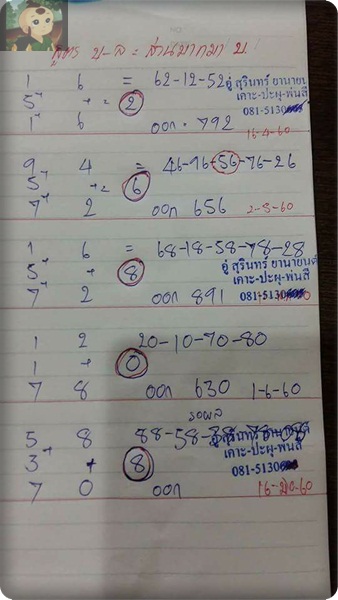 สูตร บ-ล = ส่วนมากมา บ.
1 6 = 62-12-52
5+ += 2
1+ 6 ออก. 792
อู่ สุรินทร์ ยานายนต์
เคาะ-ปะผุ-พ่นสี
081-5130
16-4-60
9 4 = 46-96-56-76-26
5+ += 6
7+ 2 ออก 656 2-5-60
1 6 = 68-18-58-78-28
5+ + 8
7+ 2 ออก 891
อู่ สุรินทร์ ยานายนต์
เคาะ-ปะผุ-พ่นสี
081-5130
1 2 20-10-70-80
1 + 0
7 8 ออก 630 1-6-60
รอผล
5 8 88-58-38-78-08
3+ + 8
7 0 ออก
เคาะ-ปะผุ-พ่นสี
081-5130
60